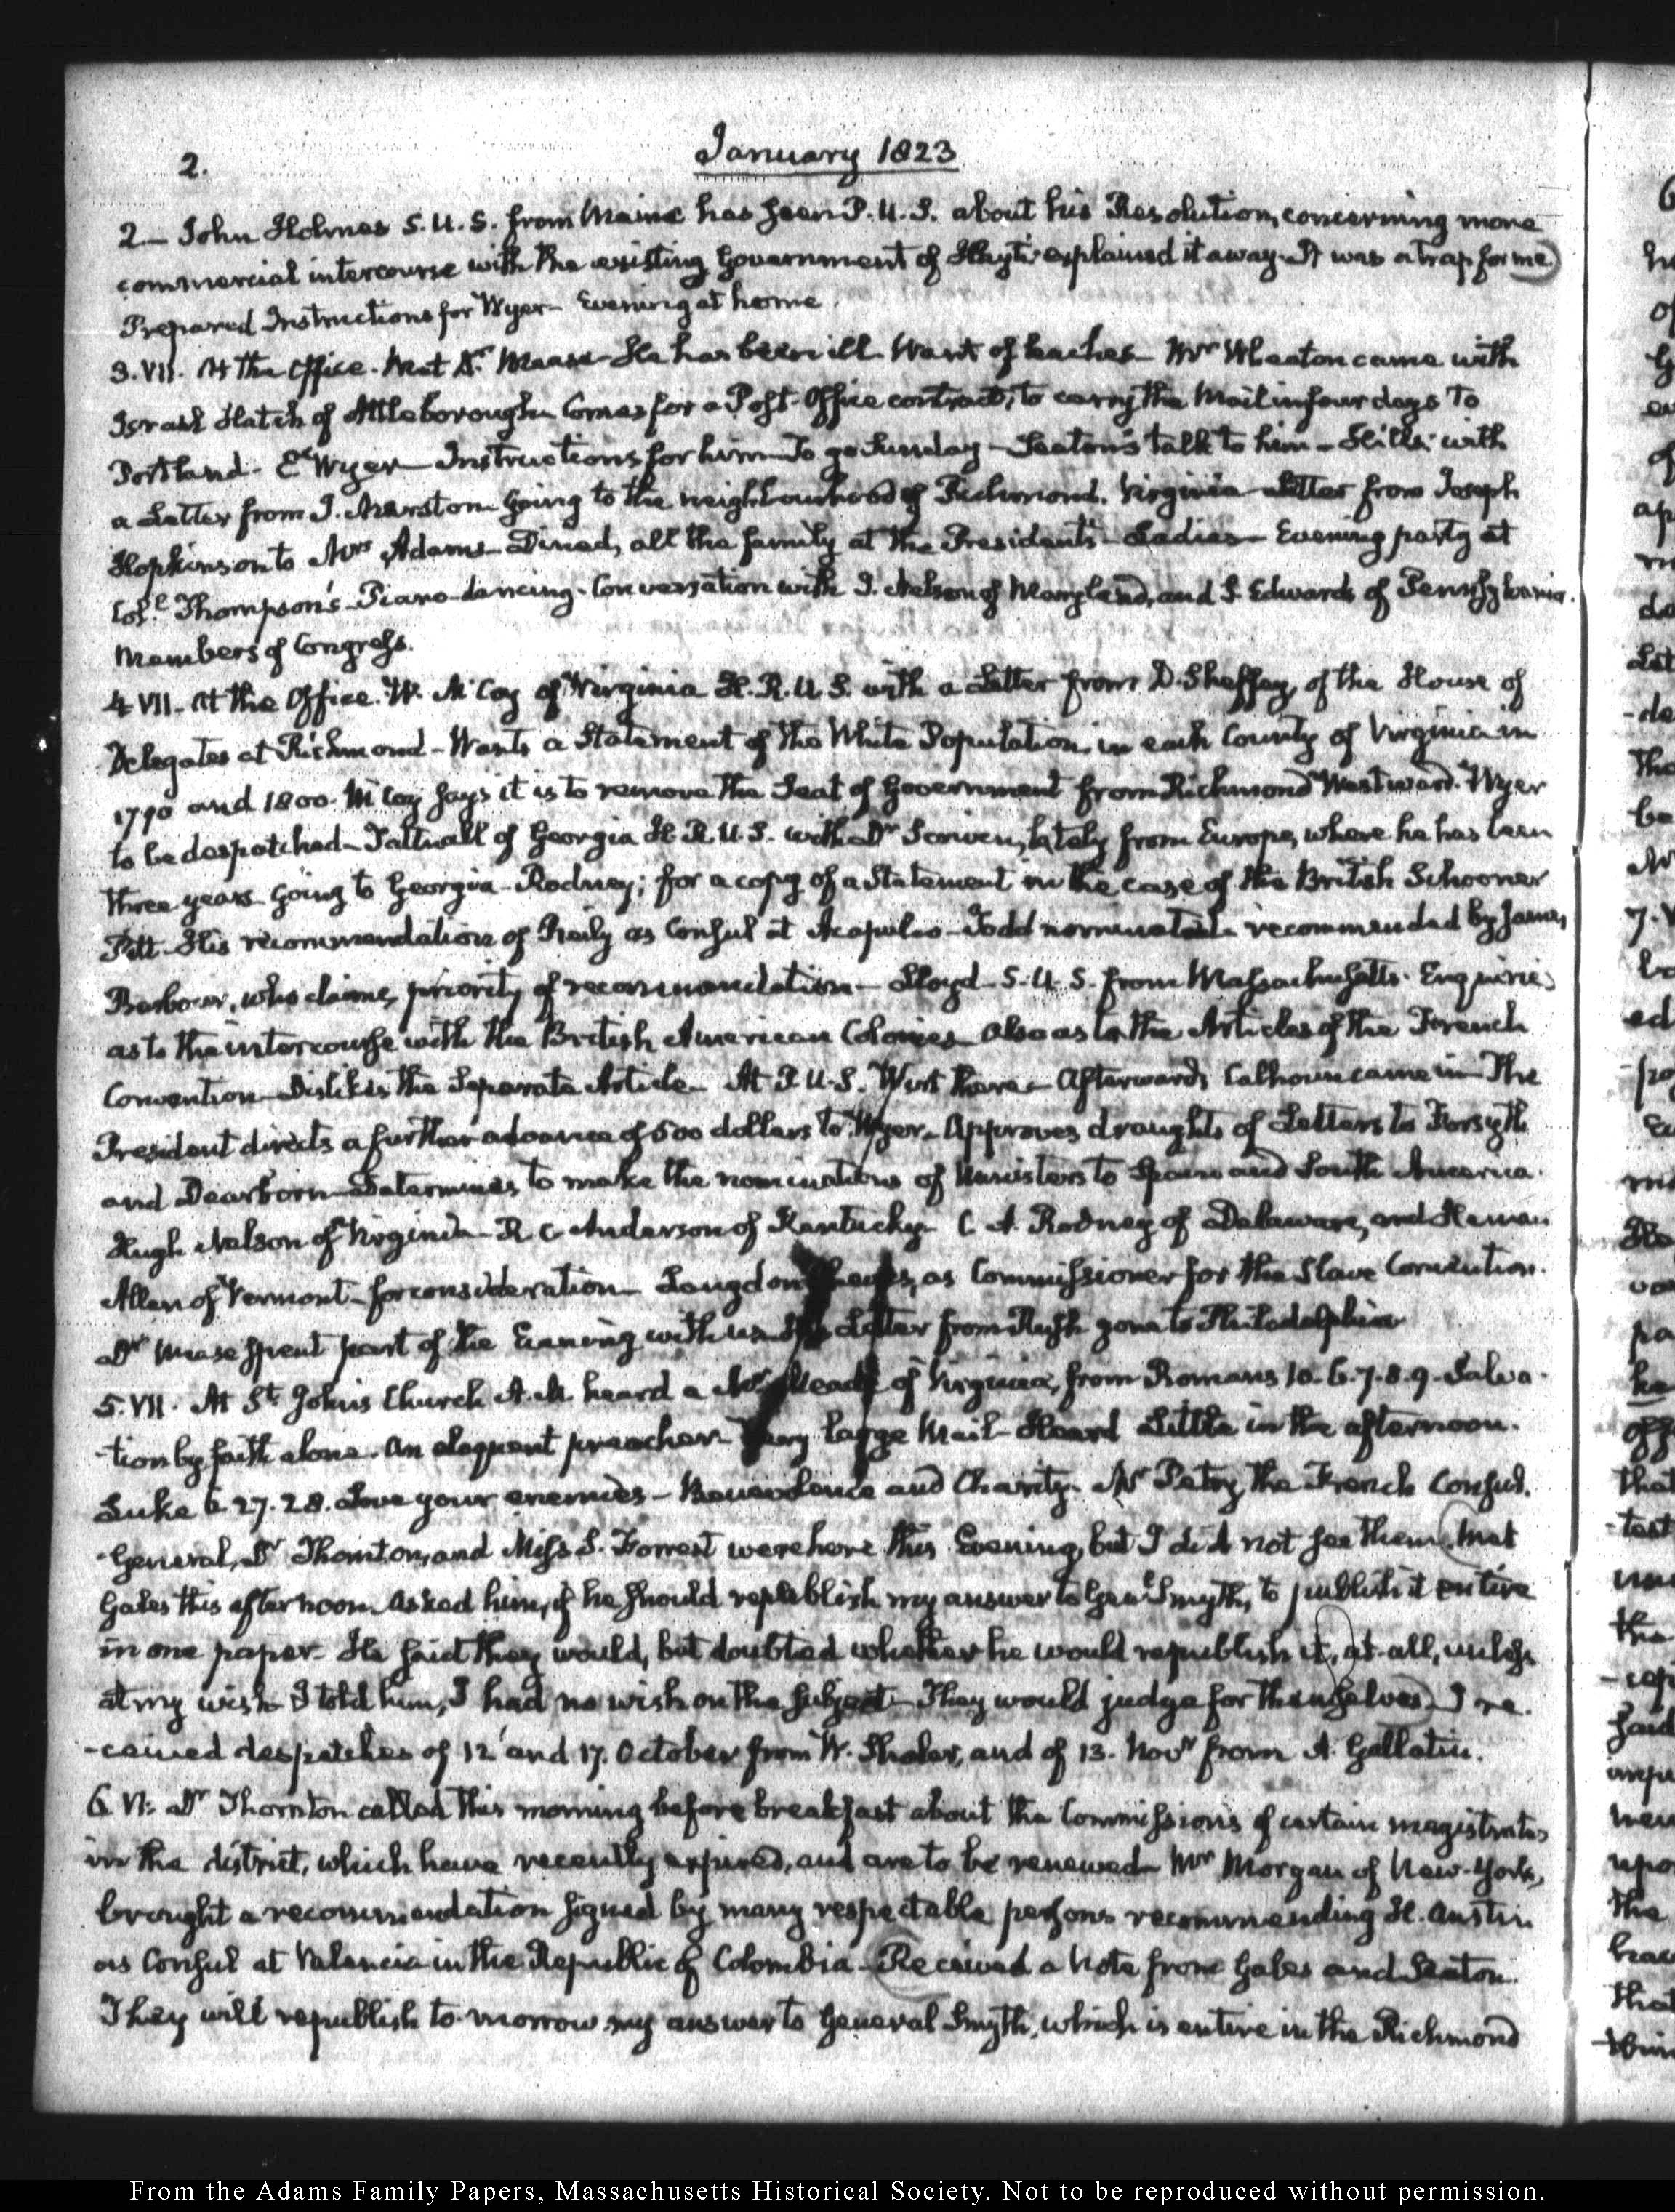 2.
January 1823
2— John Holmes S.U.S. from Maine has seen P.U.S. about his Resolution, concerning more
commercial intercourse with the existing Government of Hayti explained it away. It was a trap for me)
Prepared Instructions for Wyer— Evening at home.
3. VII. At the Office. Met Dr Mease— He has been ill. Want of teaches— Mr Wheaton came with
Israel Hatch of Attleborough— Comes for a Post-Office contract, to carry the Mail in four days to
Portland. E. Wyer— Instructions for him— To go Sunday— Seaton's talk to him— Hills: with
a Letter from J. Marston— going to the neighbourhood of Richmond, Virginia— Letter from Joseph
Hopkinson to Mrs Adams— Dined, all the family at the Presidents— Ladies— Evening party at
Coll. Thompson's— Piano-dancing. Conversation with J. Nelson of Maryland, and S. Edwards of Pennsylvania.
Members of Congress.
4 VII. At the Office. W. McCoy of Virginia H.R.U.S. with a Letter from D. Sheffey, of the House of
Delegates at Richmond— Wants a Statement of the White Population in each County of Virginia in
1790 and 1800. McCoy says it is to remove the Seat of Government from Richmond Westward. Wyer
to be despatched— Tattnall of Georgia H.R.U.S. with Dr Scriven, lately from Europe, where he has been
three years going to Georgia— Rodney; for a copy of a Statement in the case of the British Schooner
Pitt— His recommendation of Reily as Consul at Acapulco— Todd nominated recommended by James
Barbour, who claims priority of recommendation— Lloyd— S.U.S. from Massachusetts. Enquiries
as to the intercourse with the British American Colonies— also as to the Articles of the French
Convention— Dislikes the Separate Article— At P.U.S. Wirt there— Afterwards Calhoun came in— The
President directs a further advance of 500 dollars to Wyer— Approves draughts of Letters to Forsyth
and Dearborn— Determines to make the nominations of Ministers to Spain and South America.
Hugh Nelson of Virginia— R. C. Anderson of Kentucky— C. A. Rodney of Delaware, and Heman
Allen of Vermont— for consideration— Langdon Cheves, as Commissioner for the Slave Convention.
Dr Mease spent part of the Evening with us— His Letter from Rush gone to Philadelphia
5. VII. At St. John's Church A.M. heard a Mr Meade of Virginia, from Romans 10. 6. 7. 8. 9. Salva-
-tion by faith alone. An eloquent preacher— Very large Mail— Heard Little in the afternoon.
Luke 6. 27. 28. Love your enemies— Benevolence and Charity. Mr Petry, the French Consul.
-General, Dr Thornton, and Miss S. Forrest were here this Evening, but I did not see them. (Met
Gales this afternoon. Asked him, if he should republish my answer to Genl. Smyth, to publish it entire
in one paper— He said they would, but doubted whether he would republish it, at all, unless
at my wish— I told him, I had no wish on the subject— They would judge for themselves) I re-
-ceived despatches of 12 and 17. October from W. Shaler, and of 13. Novr from A. Gallatin.
6. VI: Dr Thornton called this morning before breakfast about the Commissions of certain magistrates
in the district, which have recently expired, and are to be renewed— Mr Morgan of New-York,
brought a recommendation signed by many respectable persons recommending H. Austin
as Consul at Valencia in the Republic of Colombia— (Received a Note from Gales and Seaton.
They will republish to-morrow my answer to General Smyth, which is entire in the Richmond
From the Adams Family Papers, Massachusetts Historical Society. Not to be reproduced without permission.